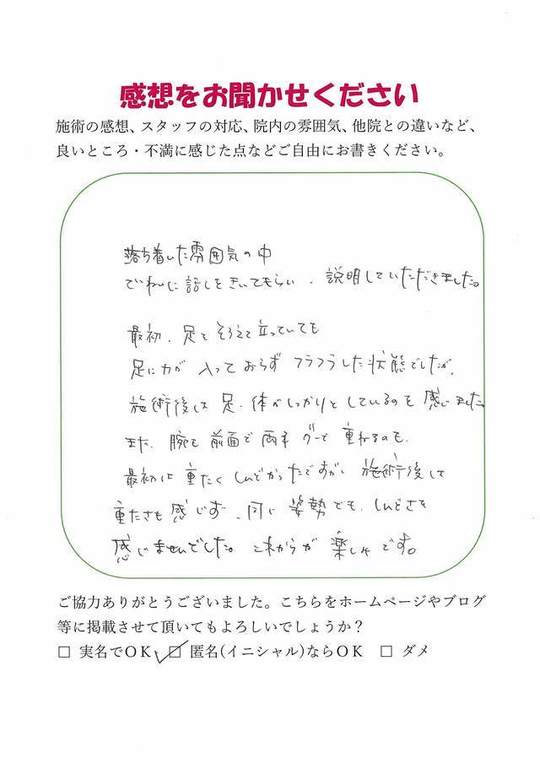 感想をお聞かせください
施術の感想、スタッフの対応、院内の雰囲気、他院との違いなど、
良いところ・不満に感じた点などご自由にお書きください。
落ち着いた雰囲気の中
でていねいに話しをきいてもらい、説明していただきました。
最初、足をそろえて立っていても
足に力が入っておらずフラフラした状態でしたが、
施術後は足、体がしっかりとしているのを感じました
また、腕を前面で両手グーで重ねるのも、
最初は重たくしんどかったですが、施術後は
重たさも感じず、同じ姿勢でも、しんどさを
感じませんでした。これからが楽しみです。
ご協力ありがとうございました。こちらをホームページやブログ
等に掲載させて頂いてもよろしいでしょうか?
□ 実名でOK ☑ 匿名(イニシャル)ならOK □ ダメ